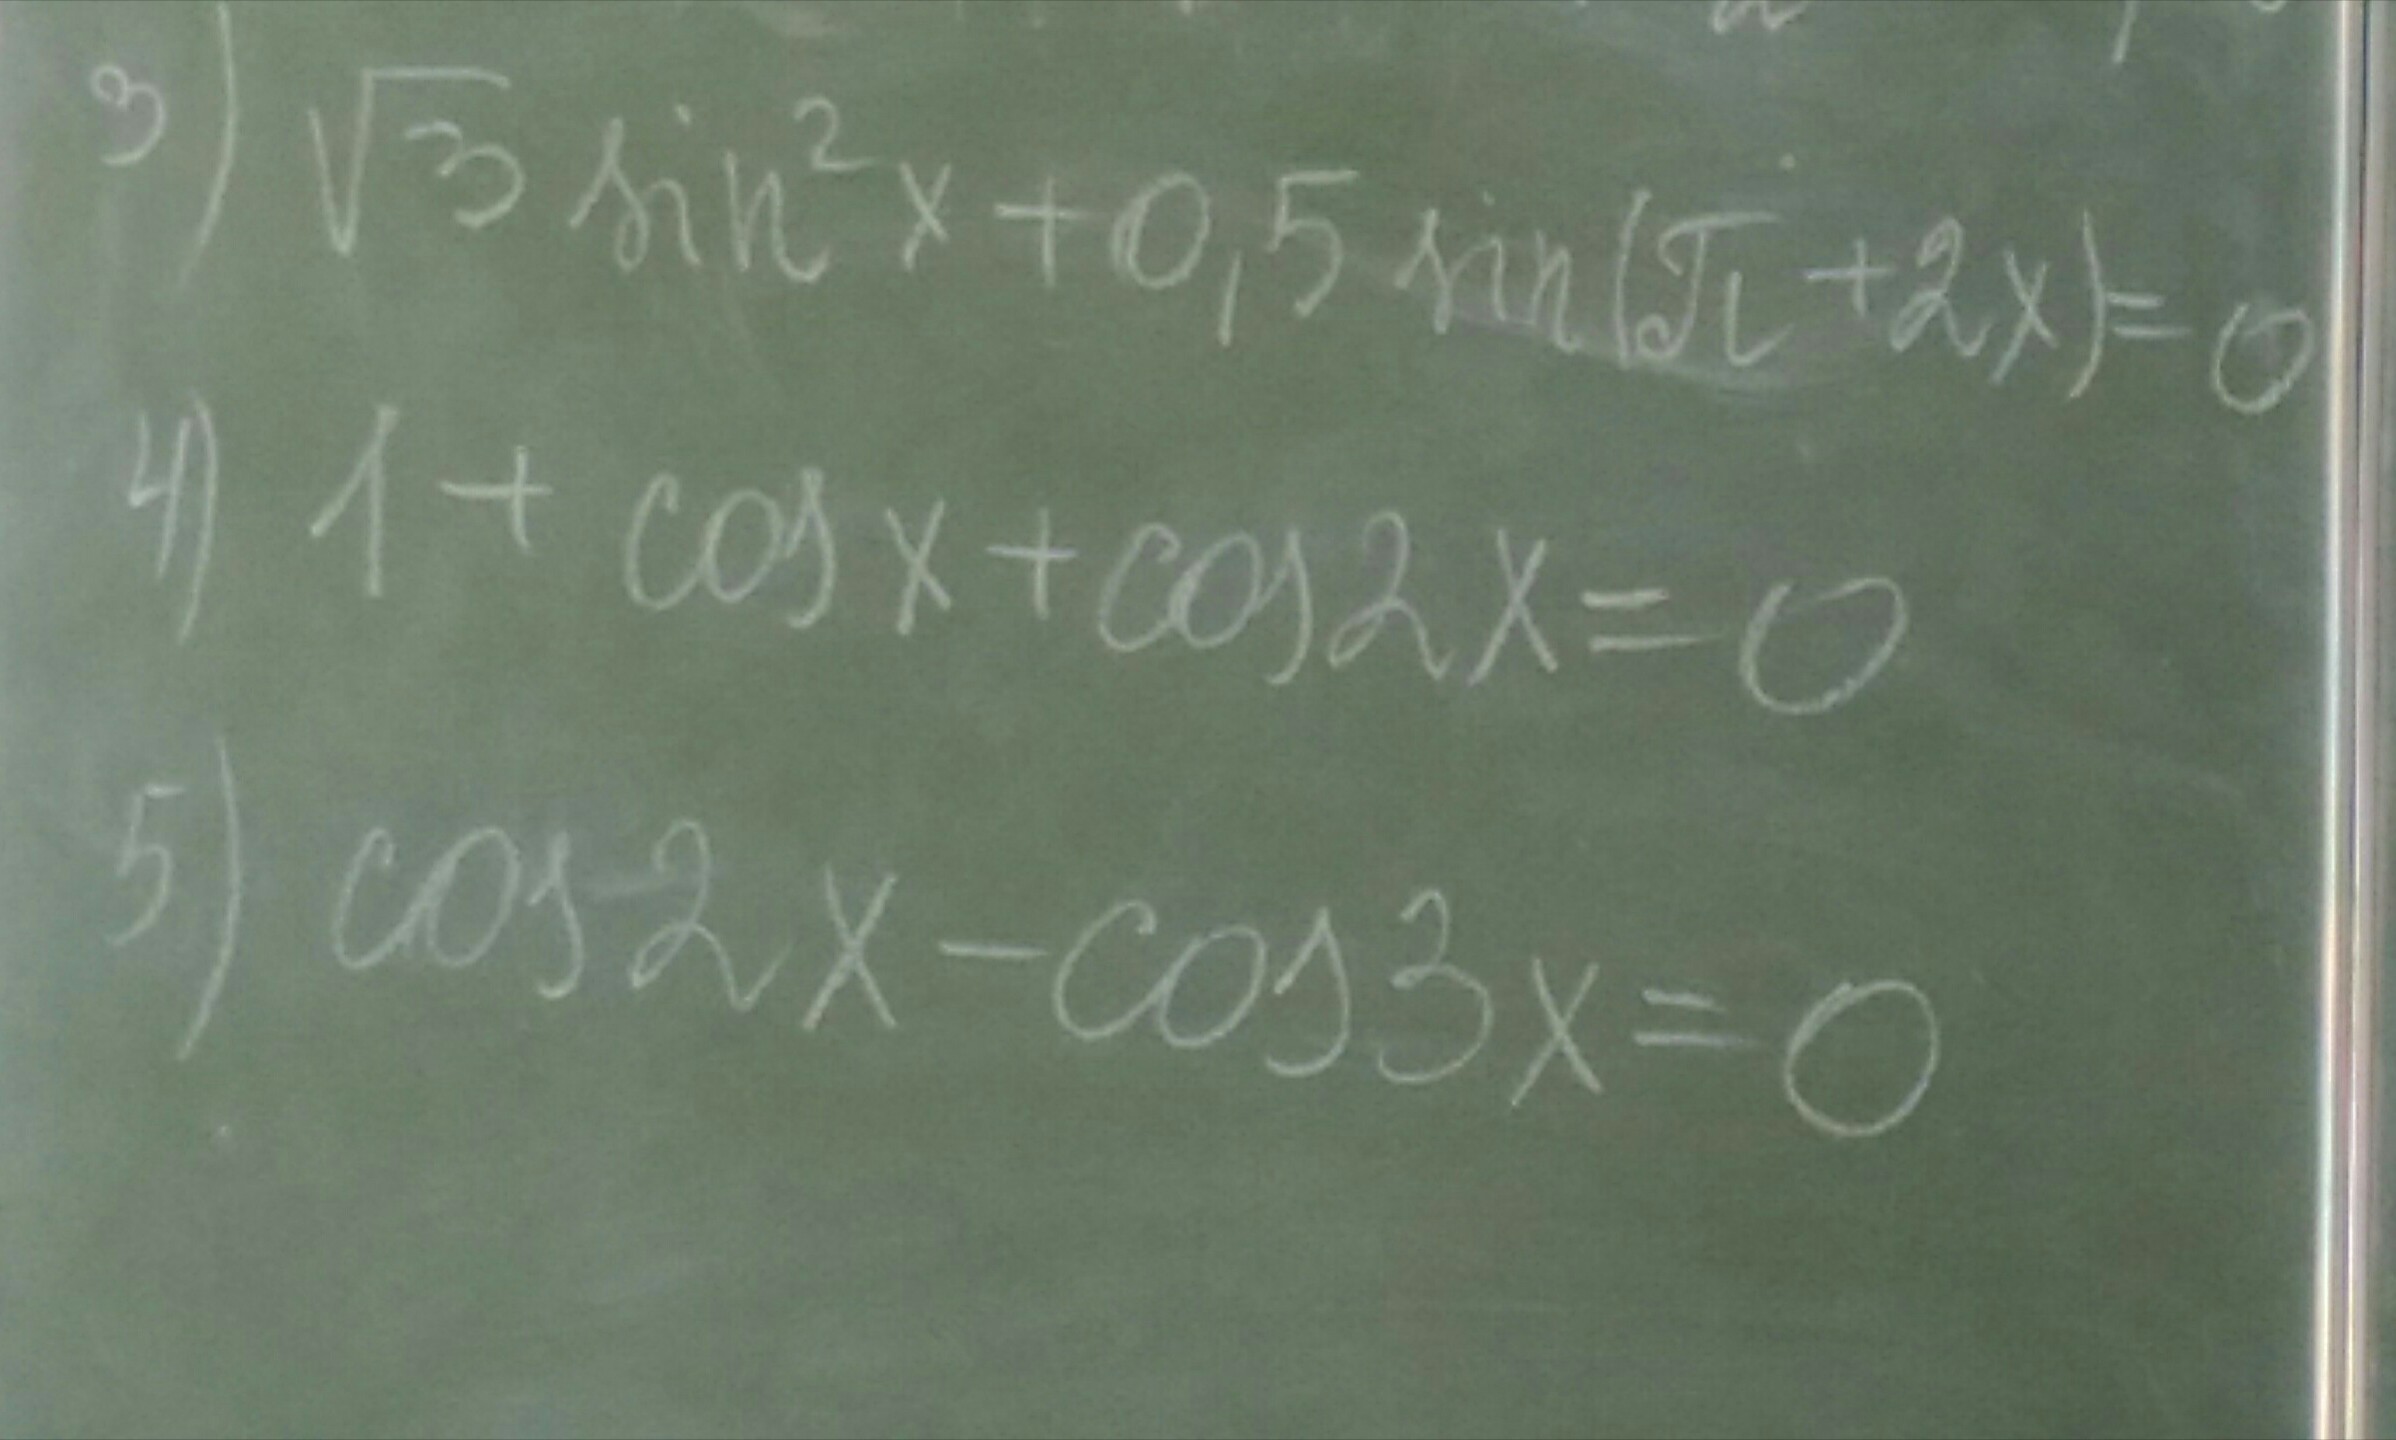 3) √3 sin²x + 0,5 sin(π + 2x) = 0
4) 1 + cos x + cos 2x = 0
5) cos 2x - cos 3x = 0